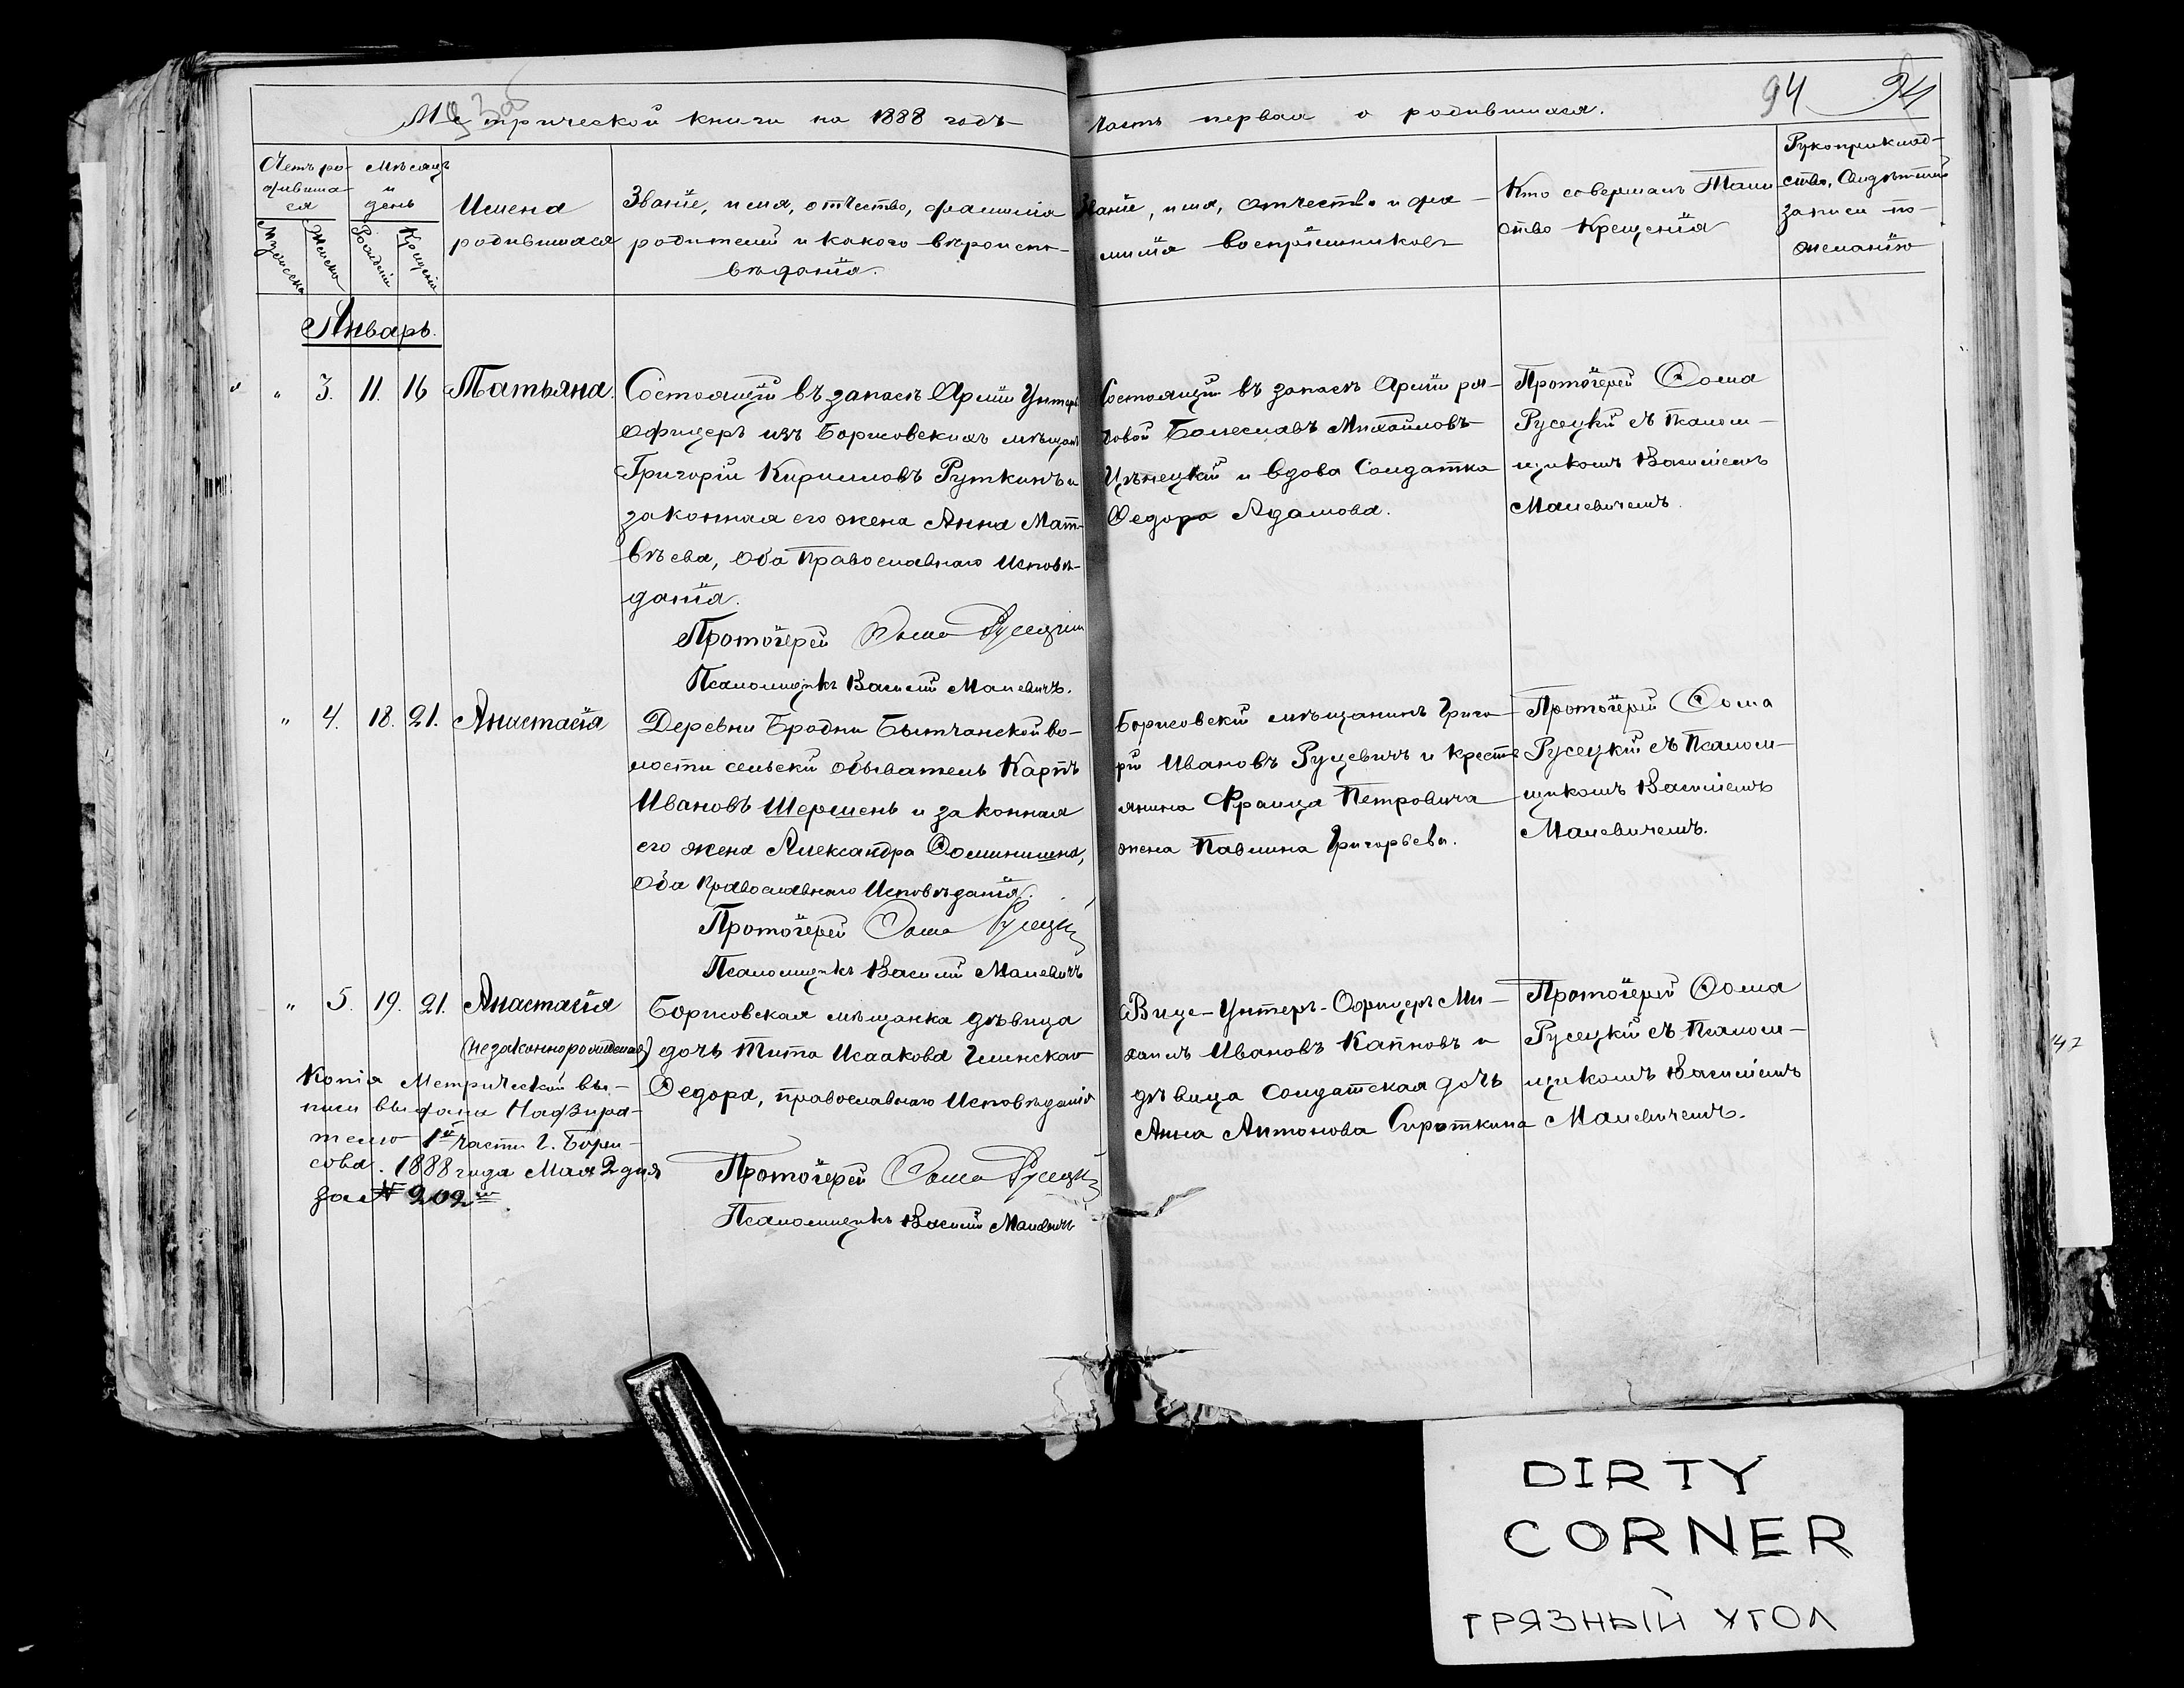 Метрической книги на 1888 годъ
часть первая о родившихся.
94
94
Счетъ ро-
дивших-
ся
Мужеска
Женска
Мѣсяцъ
и
день
Рожденія
Крещенія
Имена
родившихся
Званіе, имя, отчество, фамилія
родителей и какого вѣроиспо-
вѣданія.
Званіе, имя, отчество и фа-
милія воспріемниковъ
Кто совершалъ Таин-
ство Крещенія
Рукоприклад-
ство, Свидѣтелей
записи по-
желанію
Январь.
" 3. 11. 16 Татьяна.
Состоящій въ запасѣ Арміи Унтеръ
Офицеръ изъ Борисовскихъ мѣщанъ
Григорій Кирилловъ Руткинъ и
законная его жена Анна Мат-
вѣева, оба Православнаго Исповѣ-
данія.
Протоіерей Ѳома Русецкій
Псаломщикъ Василій Малевичъ.
Состоящій въ запасѣ Арміи ря-
довой Болеславъ Михайловъ
Цѣнецкій и вдова Солдатка
Ѳедора Адамова.
Протоіерей Ѳома
Русецкій съ Псалом-
щикомъ Василіемъ
Малевичемъ.
" 4. 18. 21. Анастасія
Деревни Бродни Бытчанской во-
лости сельскій обыватель Карпъ
Ивановъ Шершень и законная
его жена Александра
Оба Православнаго Исповѣданія.
Протоіерей Ѳома Русецкій
Псаломщикъ Василій Малевичъ
Борисовскій мѣщанинъ Григо-
рій Ивановъ Руцевичъ и крестъ
янина Франца Петровича
жена Павлина Григорьева.
Протоіерей Ѳома
Русецкій съ Псалом-
щикомъ Василіемъ
Малевичемъ.
" 5. 19. 21. Анастасія
(незаконнорожденная)
Копія Метрической вы-
писи выдана Надзира-
телю 1й части г. Бори-
сова. 1888 года Мая 2 дня
за № 202м.
Борисовская мѣщанка дѣвица
дочь Тита Исаакова Глинская
Ѳедора, православнаго Исповѣданія
Протоіерей Ѳома Русецкій
Псаломщикъ Василій Малевичъ
Вице-Унтеръ-Офицеръ Ми-
хаилъ Ивановъ Капновъ и
дѣвица солдатская дочь
Анна Антонова Сироткина
Протоіерей Ѳома
Русецкій съ Псалом-
щикомъ Василіемъ
Малевичемъ.
47
DIRTY
CORNER
ГРЯЗНЫЙ УГОЛ